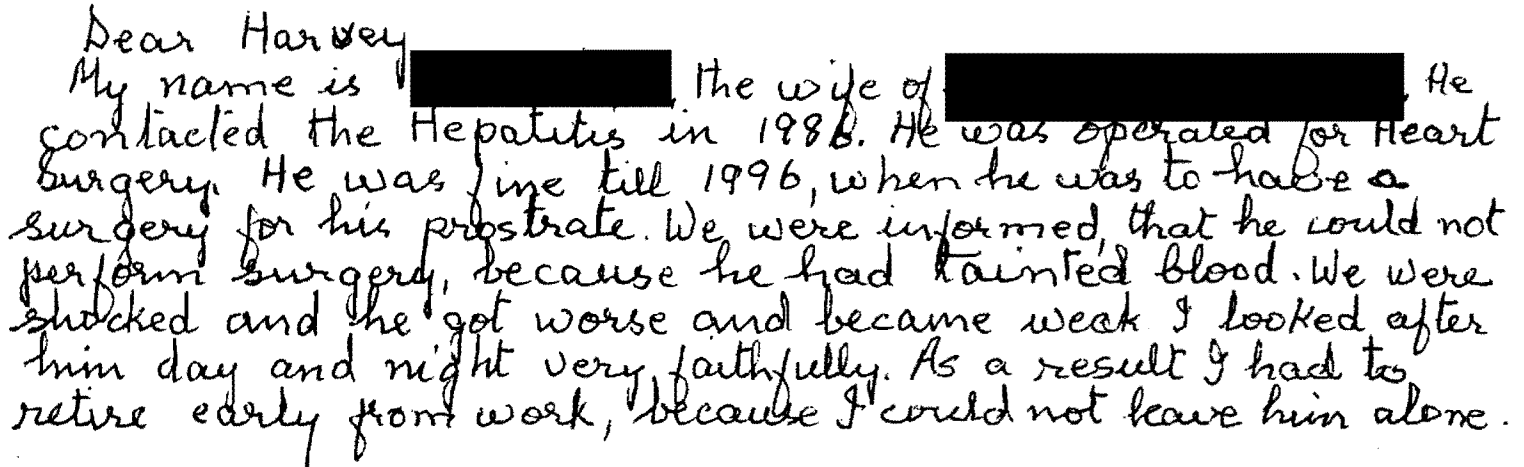 Dear Harvey
My name is , the wife of . He
contacted the Hepatitis in 1986. He was operated for Heart
Surgery. He was fine till 1996, when he was to have a
surgery for his prostrate. We were informed, that he could not
perform surgery, because he had tainted blood. We were
shocked and he got worse and became weak I looked after
him day and night very faithfully. As a result I had to
retire early from work, because I could not leave him alone.